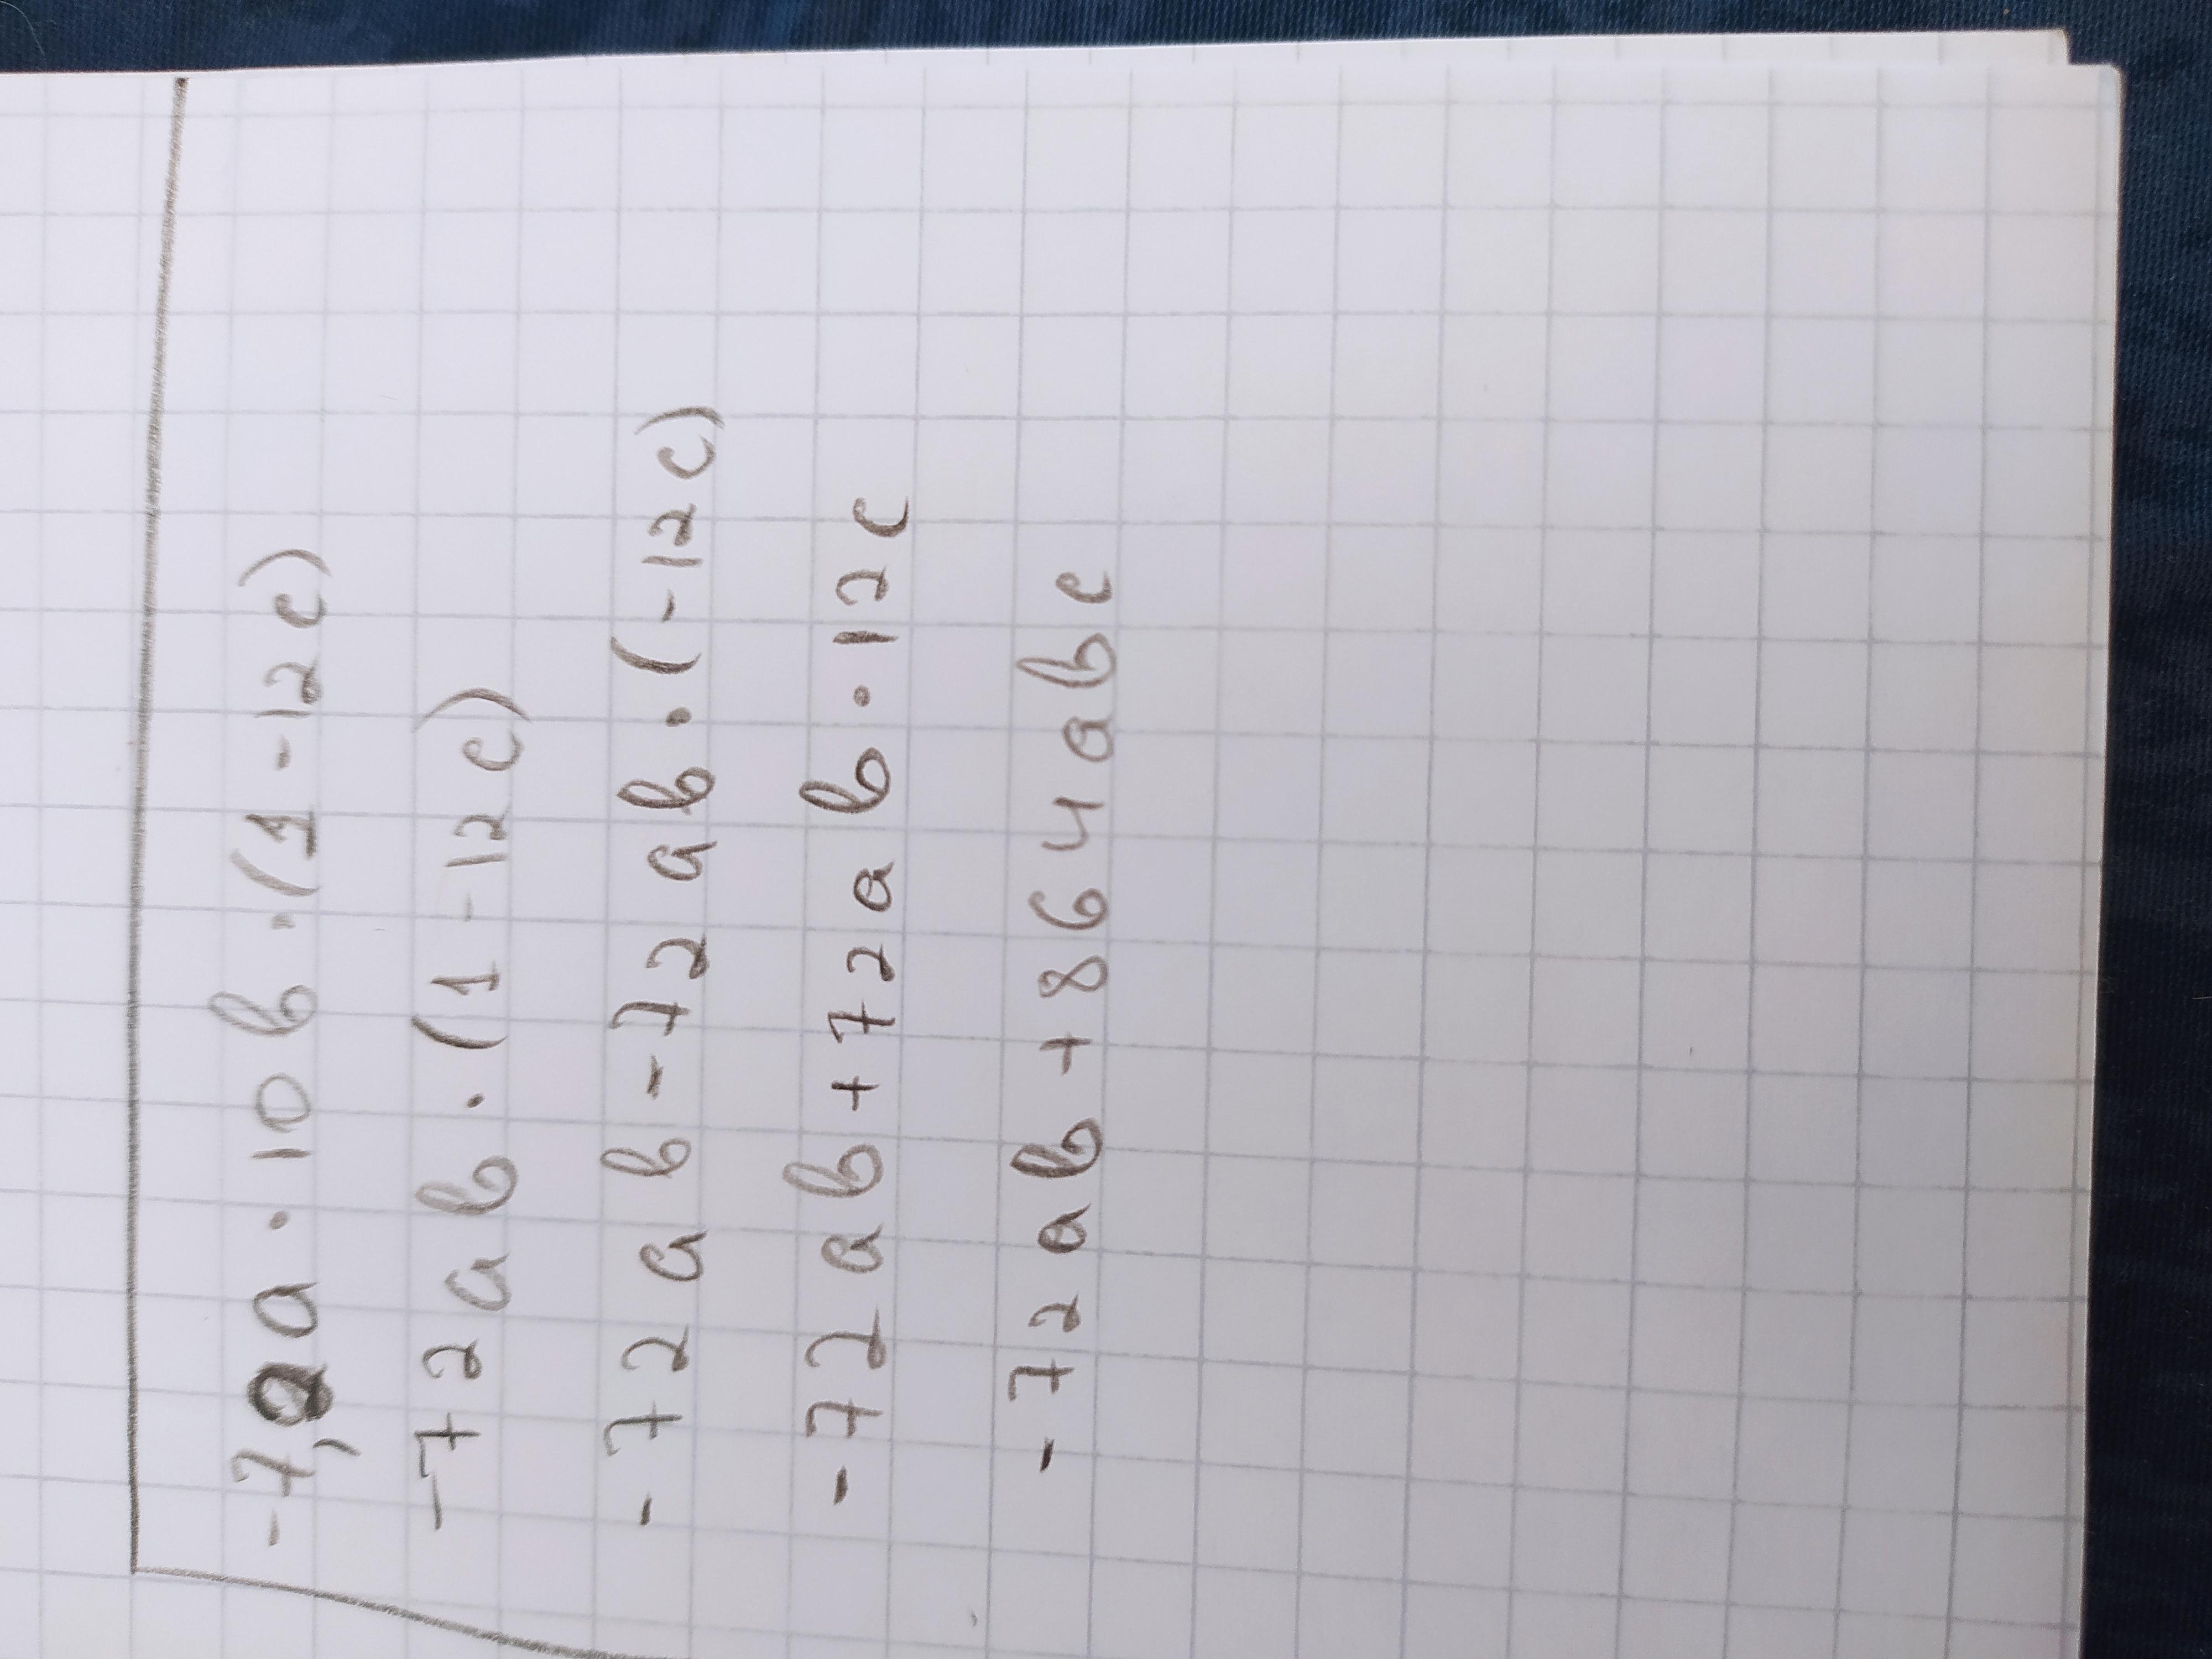 -7,2a · 10b · (1 - 12c)
-72ab · (1 - 12c)
-72ab - 72ab · (-12c)
-72ab + 72ab · 12c
-72ab + 864abc